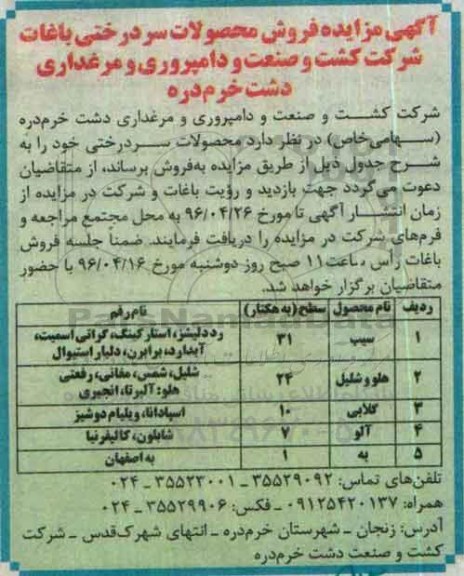 آگهی مزایده فروش محصولات سردرختی باغات
شرکت کشت و صنعت و دامپروری و مرغداری
دشت خرم‌دره
شرکت کشت و صنعت و دامپروری و مرغداری دشت خرم‌دره
(سهامی‌خاص) در نظر دارد محصولات سردرختی خود را به
شرح جدول ذیل از طریق مزایده به‌فروش برساند، از متقاضیان
دعوت می‌گردد جهت بازدید و رؤیت باغات و شرکت در مزایده از
زمان انتشار آگهی تا مورخ ۹۶/۰۴/۲۶ به محل مجتمع مراجعه و
فرم‌های شرکت در مزایده را دریافت فرمایند. ضمناً جلسه فروش
باغات رأس ساعت ۱۱ صبح روز دوشنبه مورخ ۹۶/۰۴/۱۶ با حضور
متقاضیان برگزار خواهد شد.
ردیف نام محصول سطح (به هکتار) نام رقم
۱ سیب ۳۱ رد دلیشز، استارکینگ، گرانی اسمیت، آیدارد، برابرن، دلبار استیوال
۲ هلو و شلیل ۲۴ شلیل، شمس، مغانی، رفعتی هلو: آلبرتا، انجیری
۳ گلابی ۱۰ اسپادانا، ویلیام دوشیز
۴ آلو ۷ شابلون، کالیفرنیا
۵ به ۱ به اصفهان
تلفن‌های تماس: ۳۵۵۲۹۰۹۲ ـ ۳۵۵۲۲۰۰۱ ـ ۰۲۴
همراه: ۰۹۱۲۵۴۲۰۱۳۷ ـ فکس: ۳۵۵۲۹۹۰۶ ـ ۰۲۴
آدرس: زنجان ـ شهرستان خرم‌دره ـ انتهای شهرک‌قدس ـ شرکت
کشت و صنعت دشت خرم‌دره